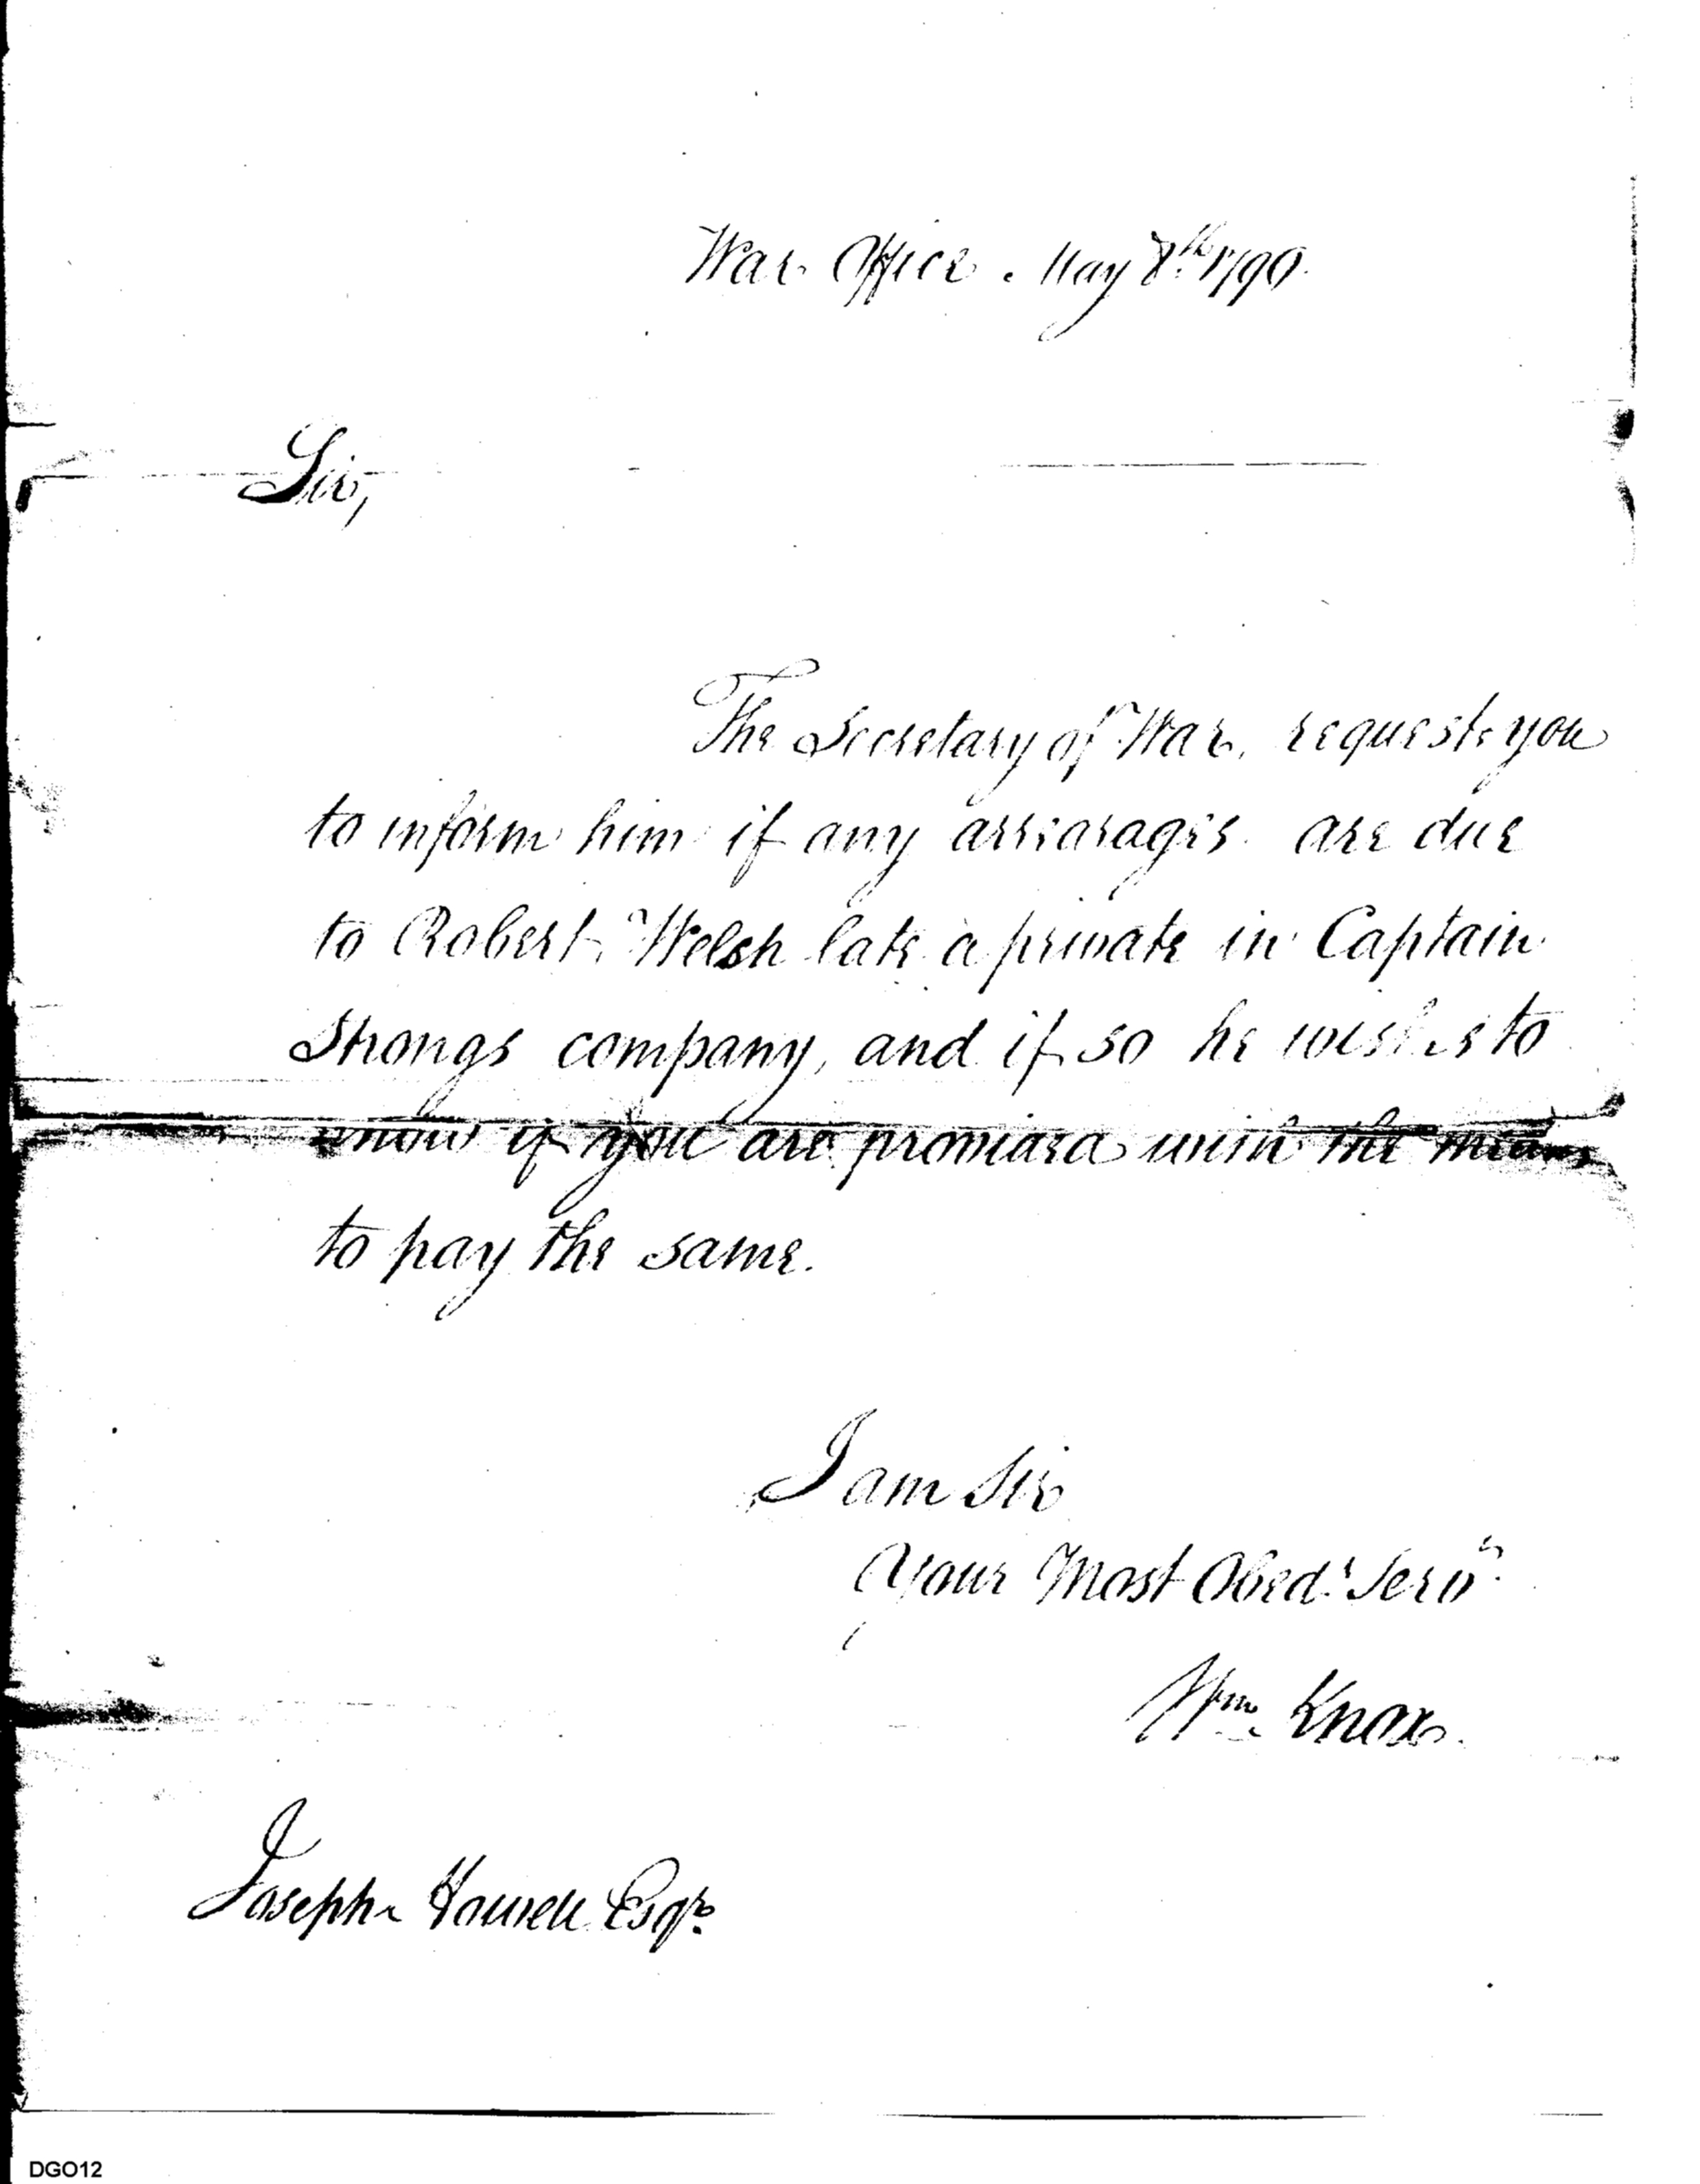 War Office. May 8th 1790.
Sir,
The Secretary of War, requests you
to inform him if any arrearages are due
to Robert Welsh late a private in Captain
Strongs company, and if so he wishes to
know if you are provided with the means
to pay the same.
I am Sir
Your Most Obedt Servt
Wm Knox.
Joseph Howell Esqr.
DGO12